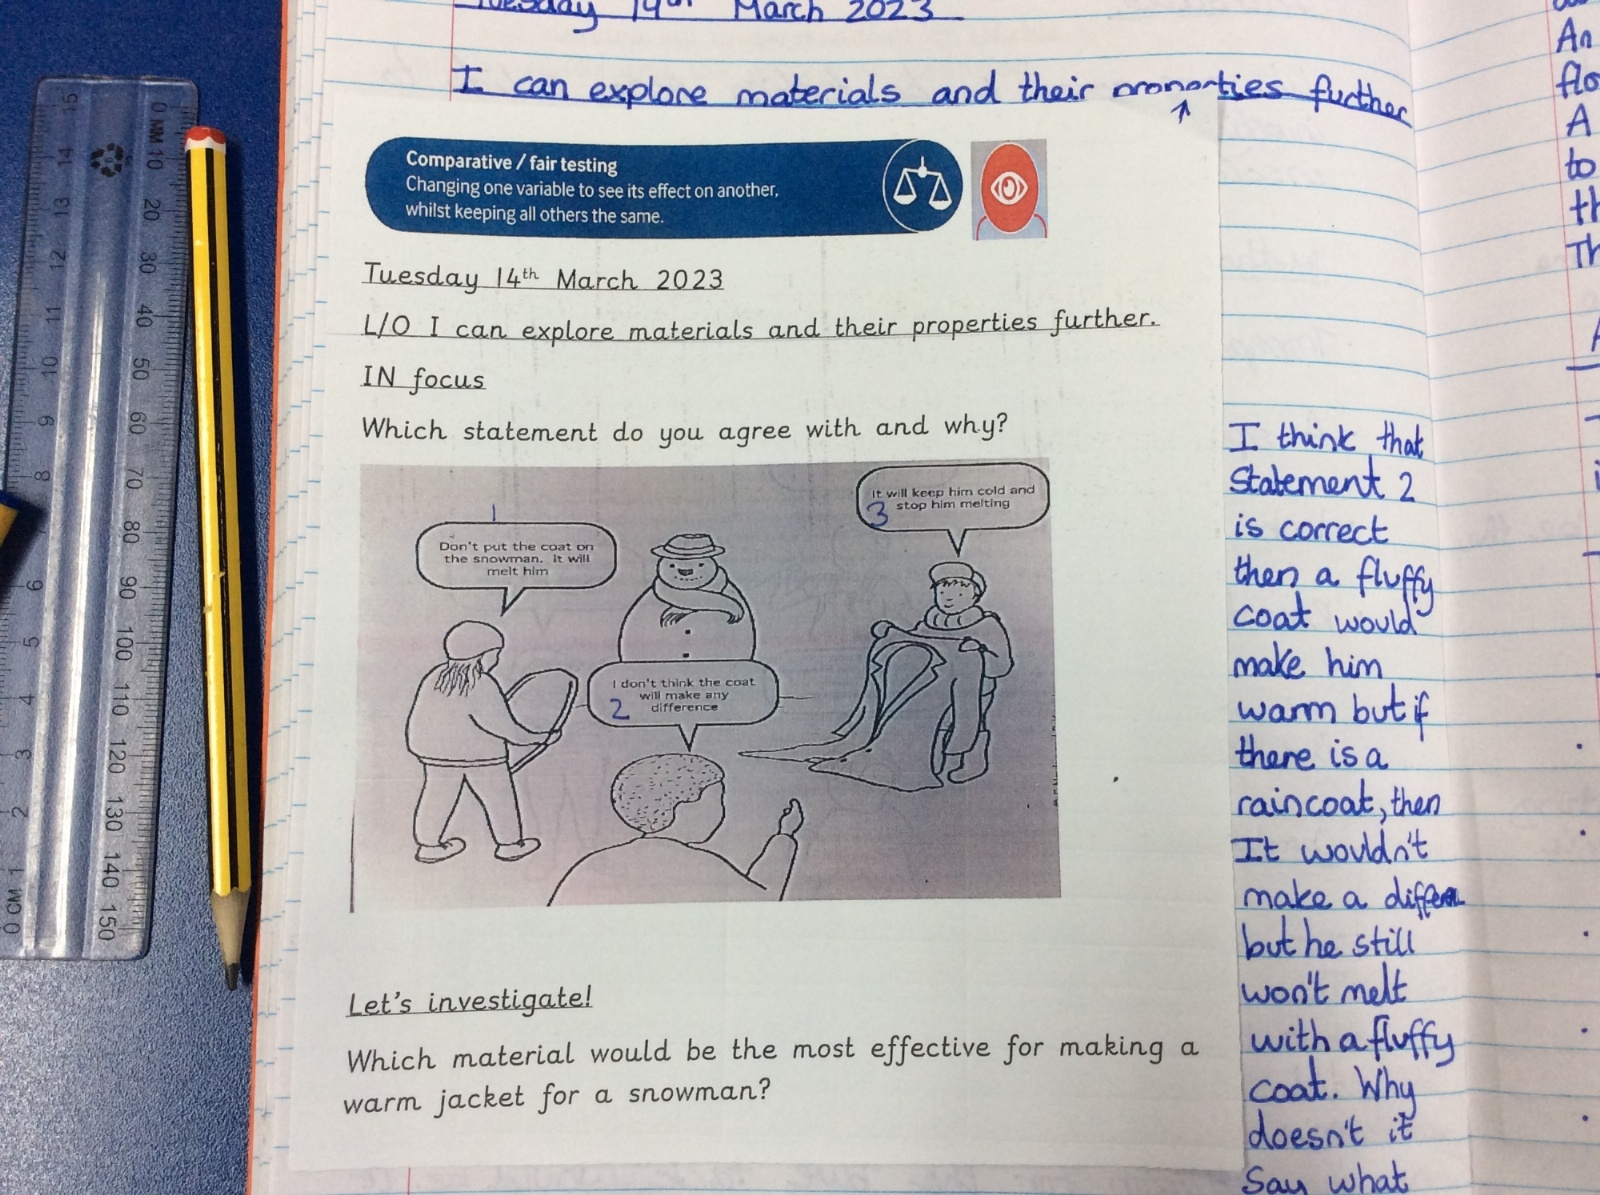 Tuesday 14th March 2023
I can explore materials and their properties further
Comparative / fair testing
Changing one variable to see its effect on another,
whilst keeping all others the same.
Tuesday 14th March 2023
L/O I can explore materials and their properties further.
IN focus
Which statement do you agree with and why?
1
Don't put the coat on
the snowman. It will
melt him
I don't think the coat
will make any
2 difference
It will keep him cold and
3 stop him melting
Let's investigate!
Which material would be the most effective for making a
warm jacket for a snowman?
I think that
Statement 2
is correct
then a fluffy
coat would
make him
warm but if
there is a
raincoat, then
It wouldn't
make a
but he still
won't melt
with a fluffy
coat. Why
doesn't it
Say what
An
flo
A
to
th
Th
0 MM 10 20 30 40 50 60 70 80 90 100 110 120 130 140 150
0 CM 1 2 3 4 5 6 8 9 10 11 12 13 14 15